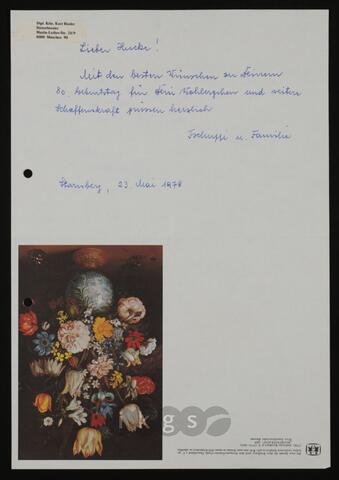 Dipl. Kfm. Kurt Binder
Martin-Luther-Str. 22/9
8000 München 90
Lieber Hucke!
Mit den besten Wünschen zu Deinem
80. Geburtstag für Dein Wohlergehen und weitere
Schaffenskraft grüssen herzlich
u. Familie
Starnberg, 23. Mai 1978
kgs